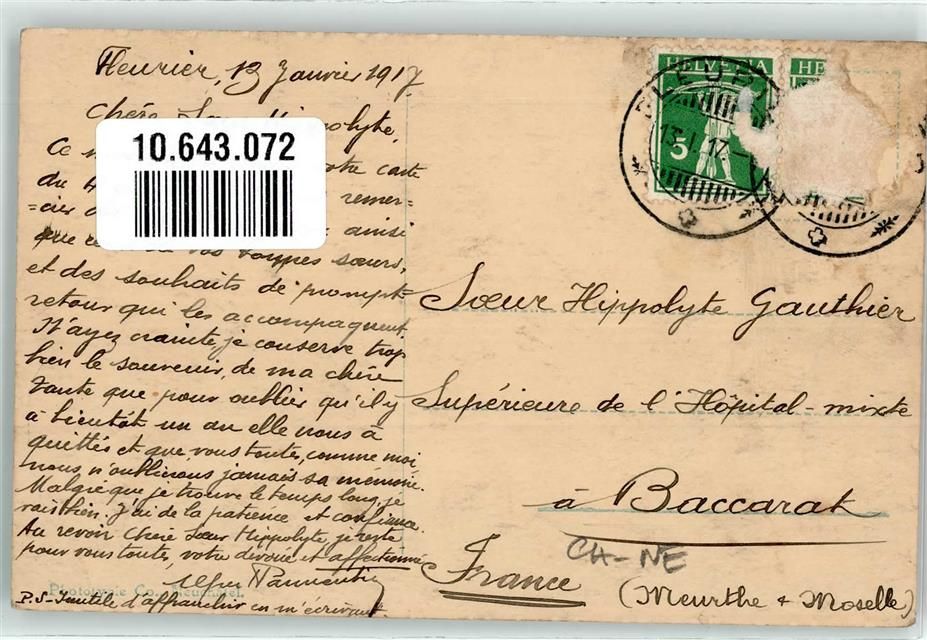 Fleurier, 13 Janvier 1917
Chère
10.643.072
Ce
votre carte
du
remer-
=cier
ainsi
que
vos bonnes sœurs,
et des souhaits de prompt
retour qui les accompagnent
N'ayez crainte, je conserve trop
bien le souvenir, de ma chère
Tante que pour oublier qu'il y
à bientôt un an elle nous à
quittés et que vous toutes, comme moi,
nous n'oublierons jamais sa mémoire.
Malgré que je trouve le temps long, je
vais bien. J'ai de la patience et confiance.
Au revoir Chère Sœur Hippolyte, je reste
pour vous toutes, votre dévoué et affectionné
Photographie Co., Neuchâtel.
P.S- Inutile d'affranchir en m'écrivant.
HELVETIA
5
HE
13.I.17.
Sœur Hippolyte Gauthier
Supérieure de l'Hôpital-mixte
à Baccarat
CH-NE
France
(Meurthe & Moselle)